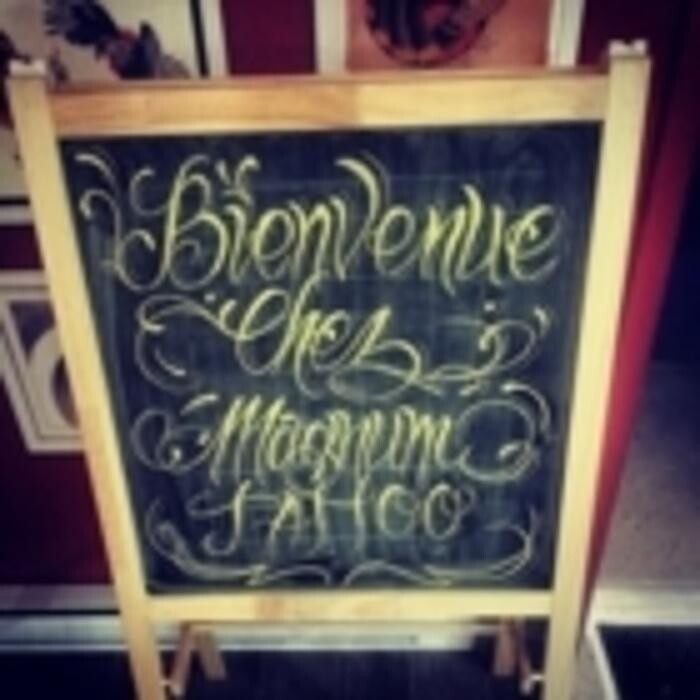 Bienvenue
Chez
Magnum
TATTOO